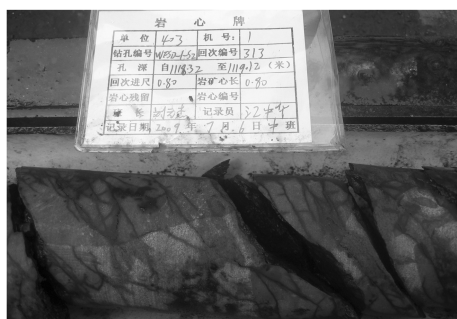 岩心牌
单位 403 机号: 1
钻孔编号 回次编号 313
孔深 自1118.32 至1119.12 (米)
回次进尺 0.80 岩矿心长 0.80
岩心残留 岩心编号
长 记录员
记录日期 2009年 7月 6日 中班